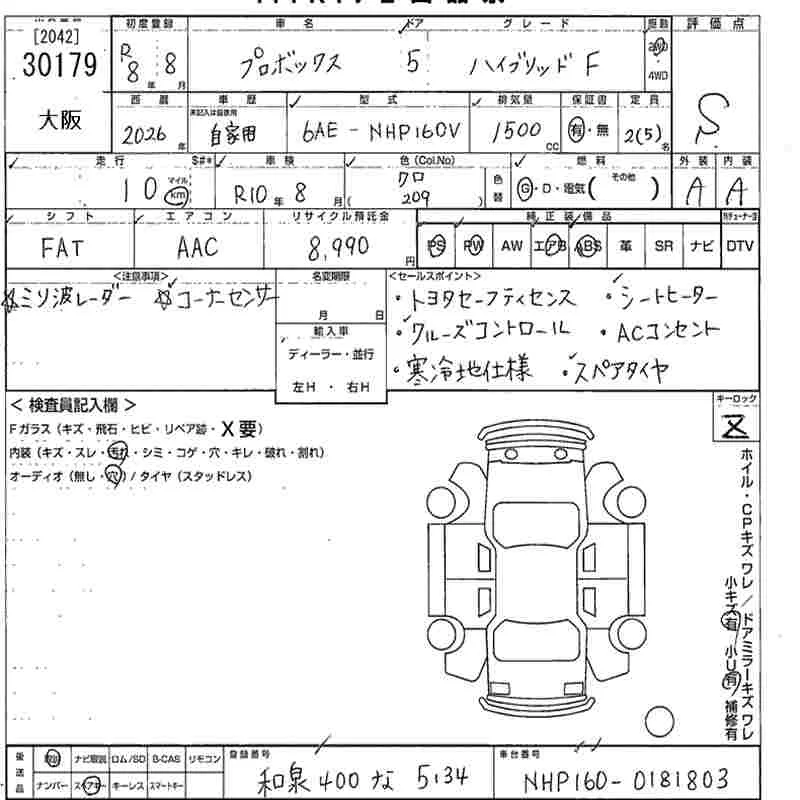 [2042]
30179
大阪
初度登録 車名 ドア グレード 駆動 評価点
R8年 8月 プロボックス 5 ハイブリッド F 2WD 4WD S
西暦 車歴 型式 排気量 保証書 定員
2026年 未記入は自家用 自家用 6AE-NHP160V 1500cc 有・無 2(5)名
走行 S#* 車検 色(Col.No) 色替 燃料 外装 内装
10 マイル km R10年 8月 クロ ( 209 ) G・D・電気( その他 ) A A
シフト エアコン リサイクル預託金 純正装備品
FAT AAC 8,990円 PS PW AW エアB ABS 革 SR ナビ DTV
<注意事項> 名変期限 <セールスポイント>
☆ミリ波レーダー ☆コーナーセンサー 月 日 ・トヨタセーフティセンス ・シートヒーター
輸入車 ・クルーズコントロール ・ACコンセント
ディーラー・並行 ・寒冷地仕様 ・スペアタイヤ
左H ・ 右H
< 検査員記入欄 > キーロック
Fガラス (キズ・飛石・ヒビ・リペア跡・X要) Z
内装 (キズ・スレ・汚れ・シミ・コゲ・穴・キレ・破れ・割れ)
オーディオ (無し・穴) / タイヤ (スタッドレス)
ホイル・CPキズワレ/ドアミラーキズワレ
小キズ有 小U有 補修有
後送品 取説 ナビ取説 ロム/SD B-CAS リモコン 登録番号 車台番号
ナンバー スペアキー キーレス スマートキー 和泉 400 な 5134 NHP160-0181803